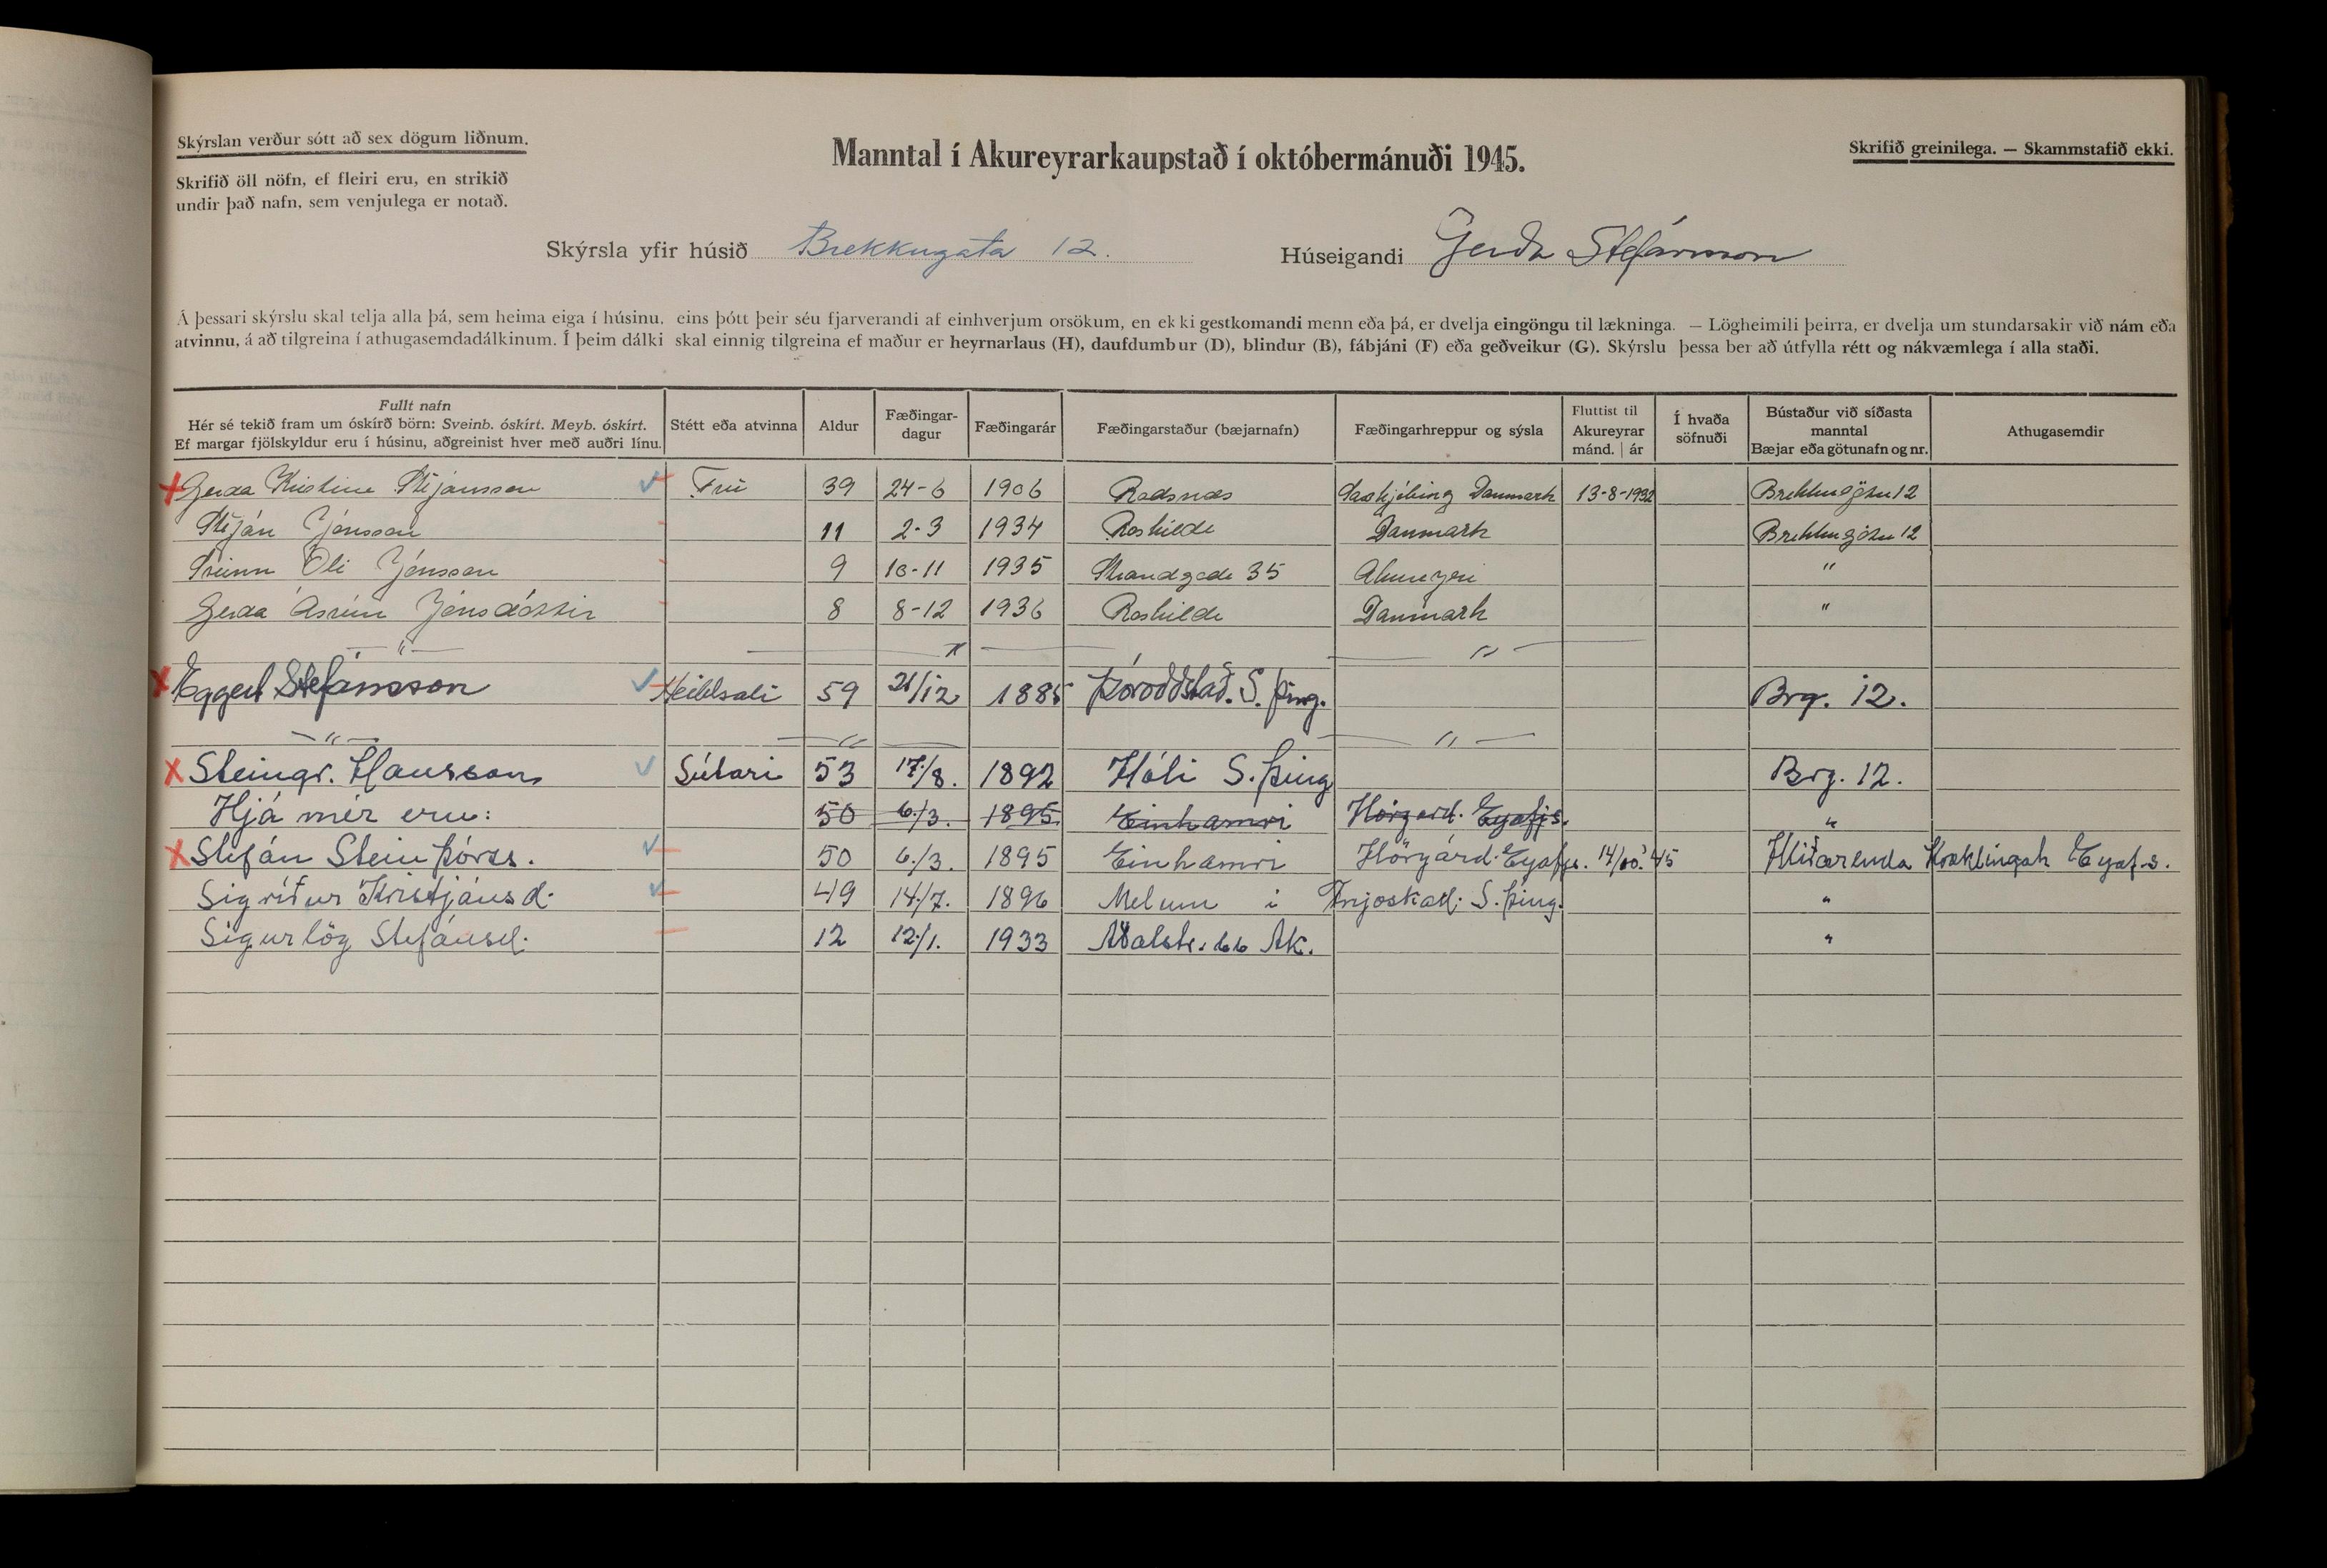 Skýrslan verður sótt að sex dögum liðnum.
Skrifið öll nöfn, ef fleiri eru, en strikið
undir það nafn, sem venjulega er notað.
Manntal í Akureyrarkaupstað í októbermánuði 1945.
Skrifið greinilega. — Skammstafið ekki.
Skýrsla yfir húsið Brekkugata 12. Húseigandi Gerda Stefánsson
Á þessari skýrslu skal telja alla þá, sem heima eiga í húsinu, eins þótt þeir séu fjarverandi af einhverjum orsökum, en ekki gestkomandi menn eða þá, er dvelja eingöngu til lækninga. — Lögheimili þeirra, er dvelja um stundarsakir við nám eða
atvinnu, á að tilgreina í athugasemdadálkinum. Í þeim dálki skal einnig tilgreina ef maður er heyrnarlaus (H), daufdumbur (D), blindur (B), fábjáni (F) eða geðveikur (G). Skýrslu þessa ber að útfylla rétt og nákvæmlega í alla staði.
Fullt nafn
Hér sé tekið fram um óskírð börn: Sveinb. óskírt. Meyb. óskírt.
Ef margar fjölskyldur eru í húsinu, aðgreinist hver með auðri línu.
Stétt eða atvinna
Aldur
Fæðingar-
dagur
Fæðingarár
Fæðingarstaður (bæjarnafn)
Fæðingarhreppur og sýsla
Fluttist til
Akureyrar
mánd. | ár
Í hvaða
söfnuði
Bústaður við síðasta
manntal
Bæjar eða götunafn og nr.
Athugasemdir
Gerda Kristine Stefánsson Frú 39 24-6 1906 Radsnæs Danmark 13-8-1932 Brekkugötu 12
Stefán Jónsson 11 2-3 1934 Roskilde Danmark Brekkugötu 12
Sveinn Óli Jónsson 9 10-11 1935 Strandgade 35 Akureyri "
Gerda Ásrún Jónsdóttir 8 8-12 1936 Roskilde Danmark "
— " — — " — — " —
Eggert Stefánsson Heildsali 59 21/12 1885 Þóroddstað. S. Þing. Brg. 12.
— " — — " — — " —
Steingr. Hansson Sútari 53 17/8. 1892 Hóli S. Þing Brg. 12.
Hjá mér eru: 50 6/3. 1895. Einhamri Hörgard. Eyafjs. "
Stefán Steinþórss. 50 6/3. 1895 Einhamri Hörgárd. Eyafjs. 14/10.'45 Hlíðarenda Kræklingah Eyaf.s.
Sigríður Kristjánsd. 49 14/7. 1896 Melum í Fnjoskad. S. Þing. "
Sigurlög Stefánsd. 12 12/1. 1933 Aðalstr. 66 Ak. "